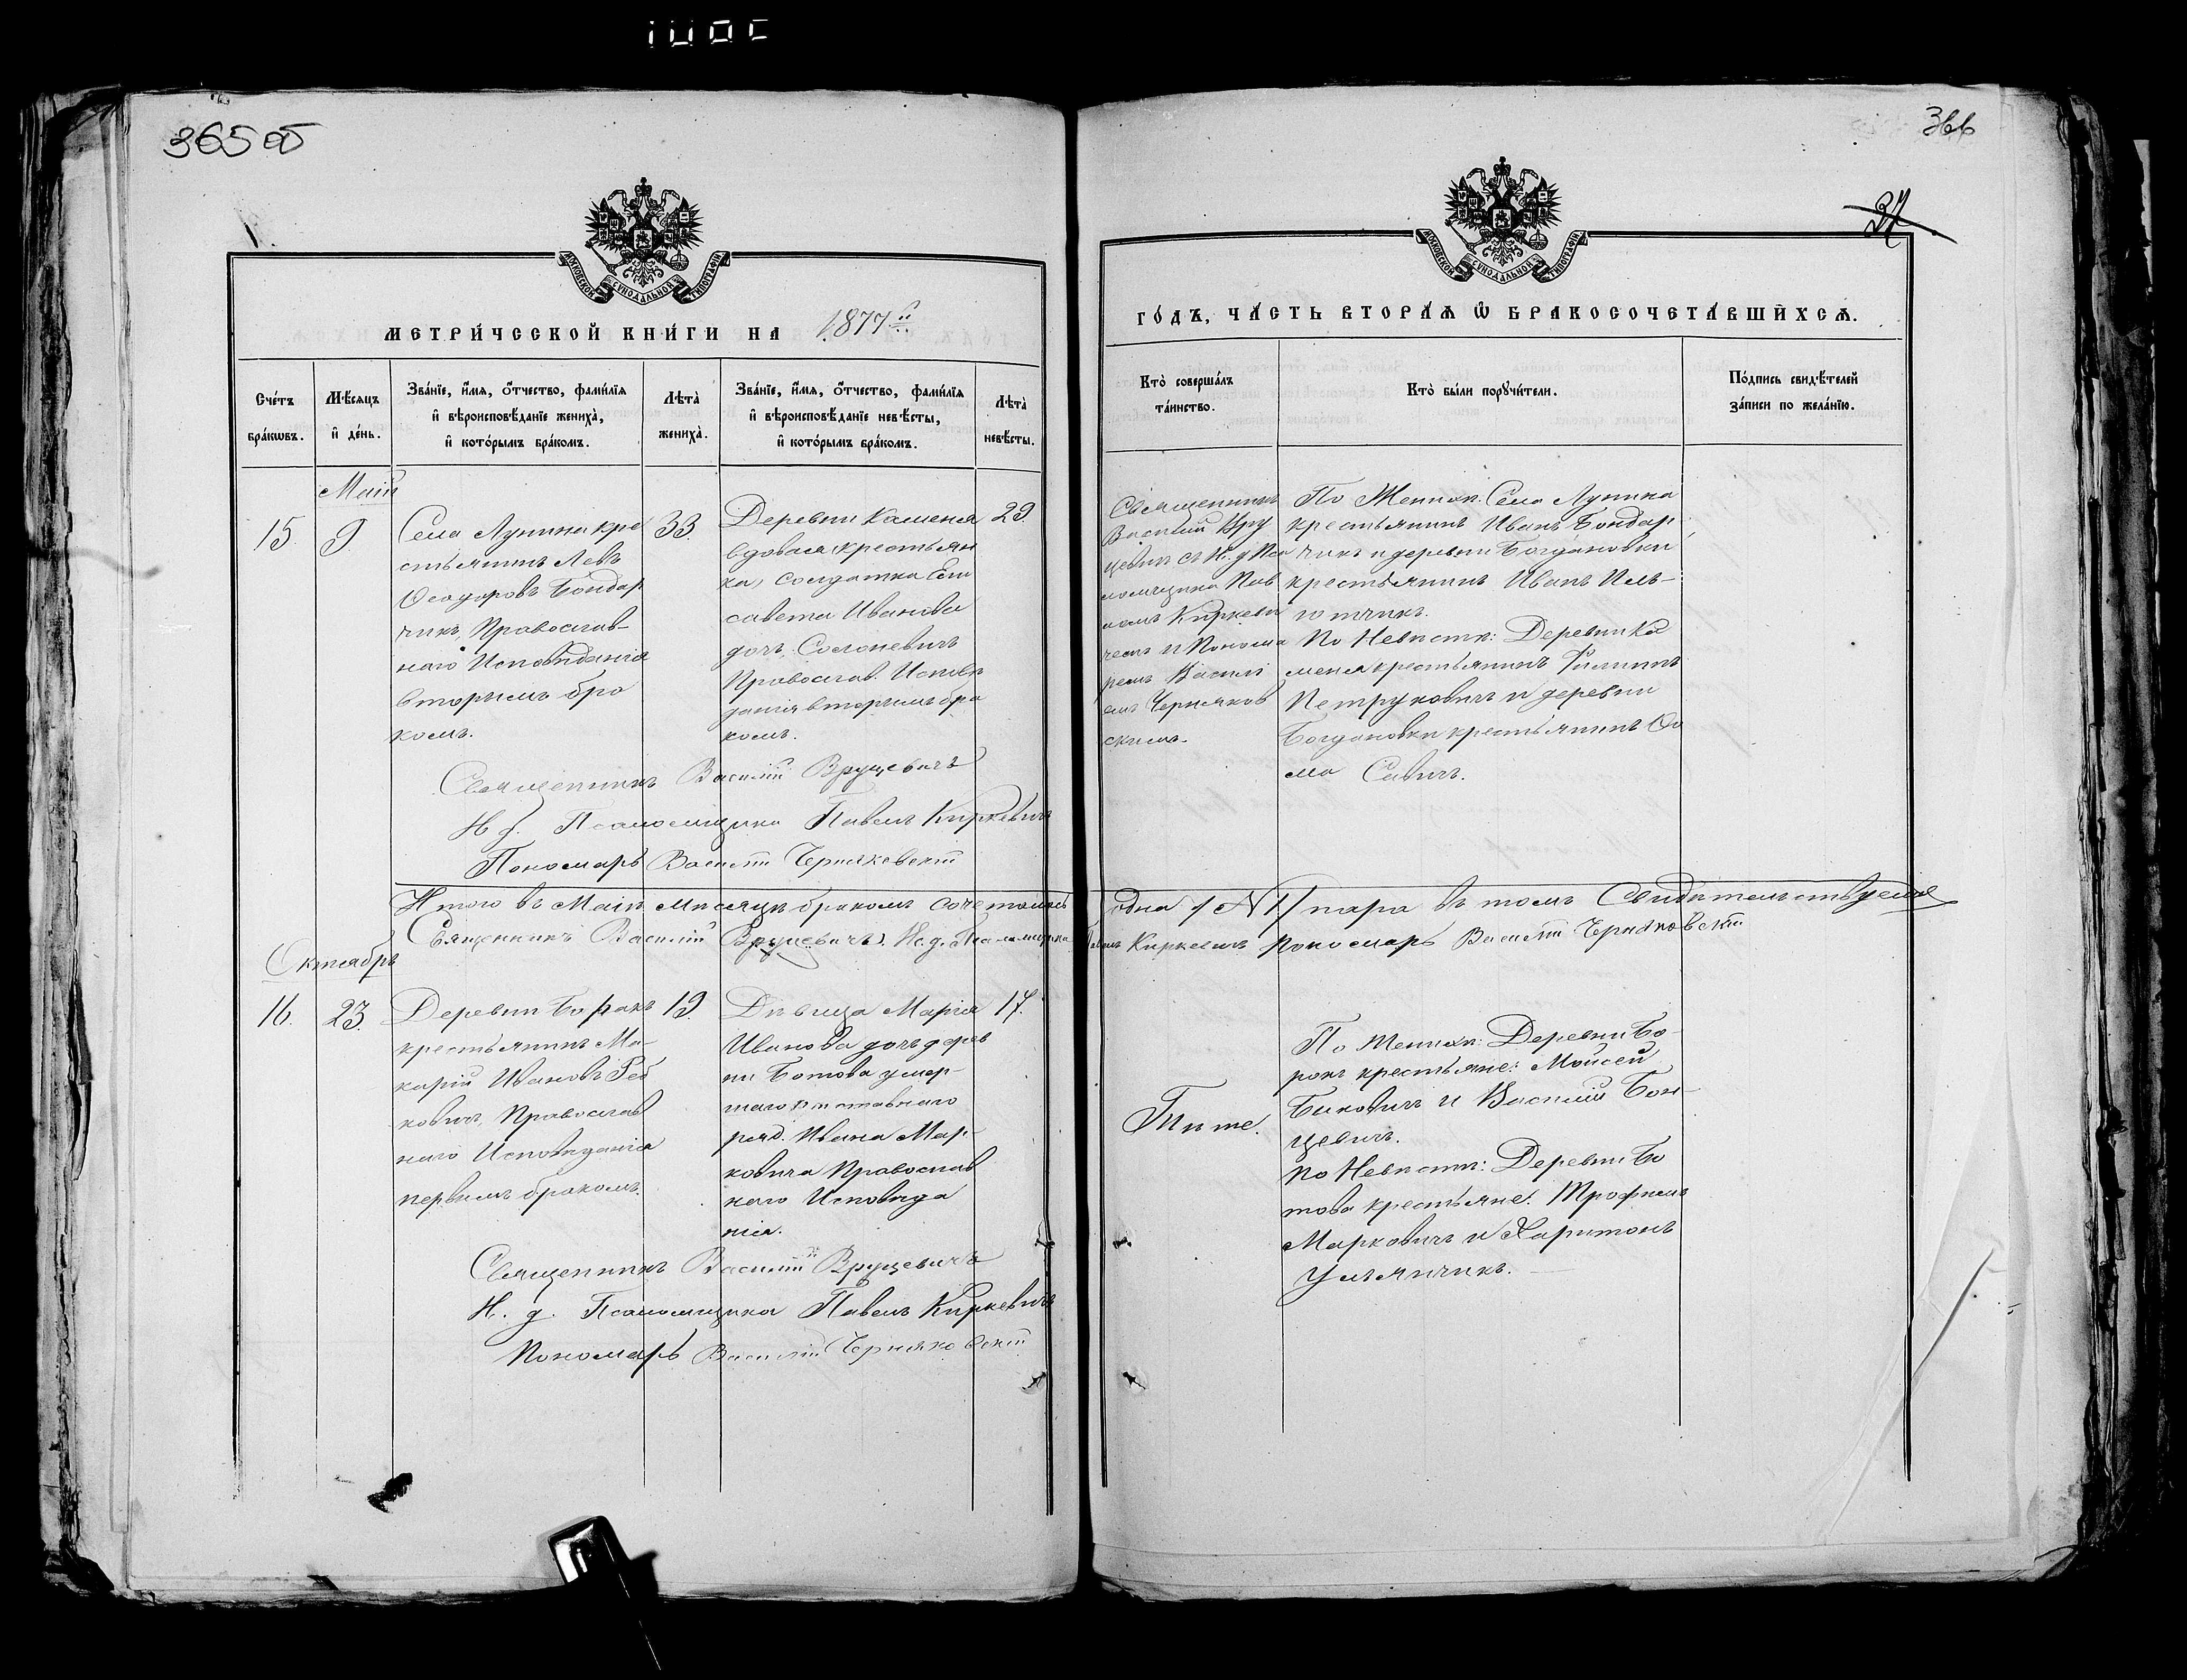 365 об
366
37
МОСКОВСКОЙ СѴНОДАЛЬНОЙ ТИПОГРАФІИ
МОСКОВСКОЙ СѴНОДАЛЬНОЙ ТИПОГРАФІИ
МЕТРИ́ЧЕСКОЙ КНИ́ГИ НА 1877й
ГО́ДЪ, ЧА́СТЬ ВТОРА́Я Ѡ БРАКОСОЧЕТА́ВШИХСЯ.
Сче́тъ
бра́кωвъ.
Мѣ́сяцъ
и҆ де́нь.
Зва́нїе, и҆́мя, ѻ҆́тчество, фами́лїя
и҆ вѣроисповѣ́данїе жениха̀,
и҆ кото́рымъ бра́комъ.
Лѣта̀
жениха̀.
Зва́нїе, и҆́мя, ѻ҆́тчество, фами́лїя
и҆ вѣроисповѣ́данїе невѣ́сты,
и҆ кото́рымъ бра́комъ.
Лѣта̀
невѣ́сты.
Кто̀ соверша́лъ
та́инство.
Кто̀ бы́ли порꙋчи́тели.
По́дпись свидѣ́телей
за́писи по жела́нїю.
Май
15.
9
Села Лунина кре
стьянинъ Левъ
Ѳеодоровъ Бондар
чикъ, Православ-
наго Исповѣданія
вторымъ бра
комъ.
33.
Деревни Каменя
вдовая крестьян
ка, солдатка Ели
савета Иванова
дочь Солоневичъ
Православ. Исповѣ
данія вторымъ бра
комъ.
29.
Священникъ
Василій Вру
цевичъ съ И. д. Пса
ломщика Пав
ломъ Киркеви
чемъ и Понома
ремъ Васил
емъ Черняков
скимъ.
По Женихѣ: Села Лунина
крестьянинъ Иванъ Бондар
чикъ и деревни Богдановки
крестьянинъ Иванъ Иль-
ютчикъ.
По Невѣстѣ: Деревни Ка
меня крестьянинъ Филиппъ
Петруковичъ и деревни
Богдановки крестьянинъ Ѳо
ма Савичъ.
Священникъ Василій Вруцевичъ
И д. Псаломщика Павелъ Киркевичъ
Пономарь Василій Черняковскій
Итого въ Маѣ мѣсяцѣ бракомъ сочеталась одна /№ 1/ пара въ томъ Свидѣтельствуемъ
Священникъ Василій Вруцевичъ. И. д. Псаломщика Павелъ Киркевичъ Пономарь Василій Черняковскій
Октябрь
16.
23.
Деревни Борокъ
крестьянинъ Ма-
карій Ивановъ Реб
ковичъ, Православ
наго Исповѣданія
первымъ бракомъ.
19.
Дѣвица Марія
Иванова дочь дерев
ни Ботова умер-
шаго отставнаго
ряд. Ивана Мар-
ковича Православ
наго Исповѣда
нія.
17.
Тѣ же.
По Женихѣ: Деревни Бо-
рокъ крестьяне: Мойсей
Биковичъ и Василій Бон-
цевичъ.
По Невѣстѣ: Деревни Бо
това крестьяне. Трофимъ
Марковичъ и Харитонъ
Ульянчикъ.
Священникъ Василій Вруцевичъ
И. д. Псаломщика Павелъ Киркевичъ
Пономарь Василій Черняковскій